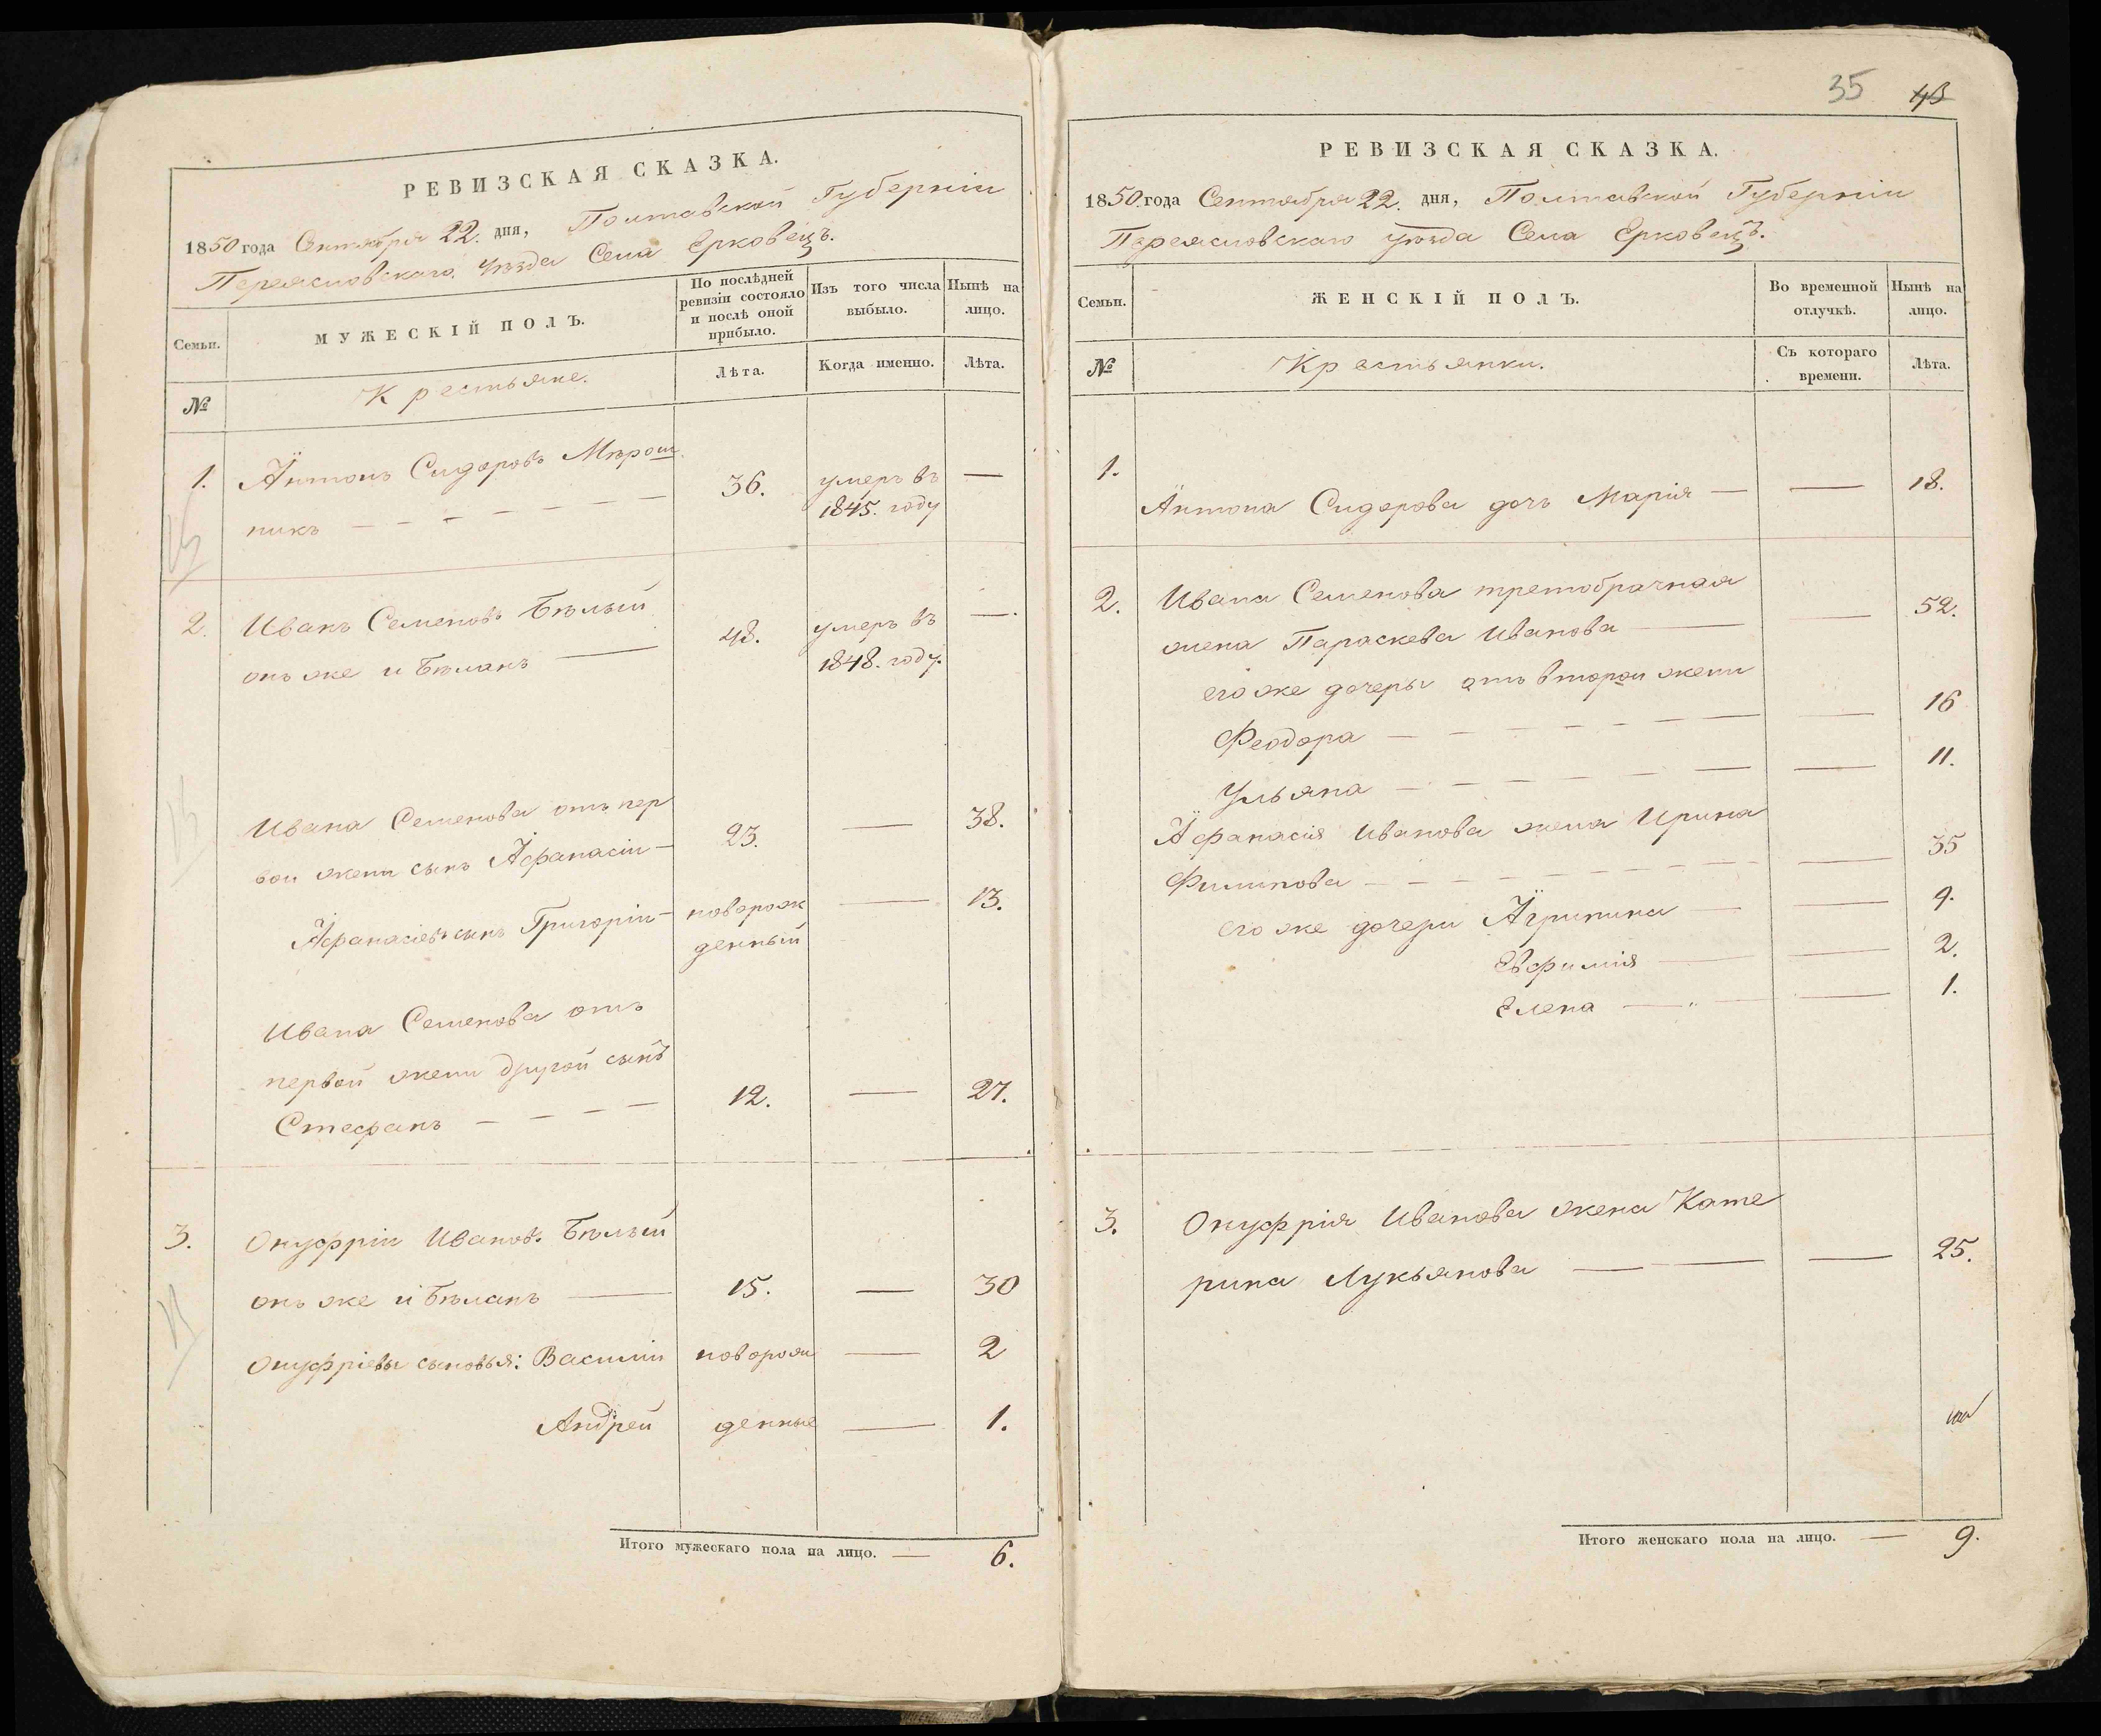 РЕВИЗСКАЯ СКАЗКА.
1850 года Сентября 22. дня, Полтавской Губерніи
Переясловскаго уѣзда Села Ерковецъ.
Семьи.
МУЖЕСКІЙ ПОЛЪ.
По послѣдней ревизіи состояло и послѣ оной прибыло.
Изъ того числа выбыло.
Нынѣ на лицо.
№
Крестьяне.
Лѣта.
Когда именно.
Лѣта.
1. Антонъ Сидоровъ Мѣрош
никъ — 36. умеръ въ —
1845. году
2. Иванъ Семеновъ Бѣлый
онъ же и Бѣланъ — 48. умеръ въ —.
1848. году.
Ивана Семенова отъ пер
вои жени сынъ Афанасіи — 23. — 38.
Афанасіевъ сынъ Григоріи — новорож — 13.
денный
Ивана Семенова отъ
первой жени другой сынъ
Стефанъ — 12. — 27.
3. Онуфріи Ивановъ Бѣлый
онъ же и Бѣланъ — 15. — 30
Онуфріевы сыновья: Василіи новорож — 2
Андрей денные — 1.
Итого мужескаго пола на лицо. — 6.
35 43
РЕВИЗСКАЯ СКАЗКА.
1850 года Сентября 22. дня, Полтавской Губерніи
Переясловскаго уѣзда Села Ерковецъ.
Семьи.
ЖЕНСКІЙ ПОЛЪ.
Во временной отлучкѣ.
Нынѣ на лицо.
№
Крестьянки.
Съ котораго времени.
Лѣта.
1.
Антона Сидорова дочь Марія — — 18.
2. Ивана Семенова третобрачная
жена Параскева Иванова — — 52.
его же дочеры отъ второи жени
Феодора — — 16
Ульяна — — 11.
Афанасія Иванова жена Ирина
Филипова — — 35
его же дочери Агрипина — — 9.
Евфимія — — 2.
Елена — — 1.
3. Онуфрія Иванова жена Кате
рина Лукьянова — — 25.
Итого женскаго пола на лицо. — 9.